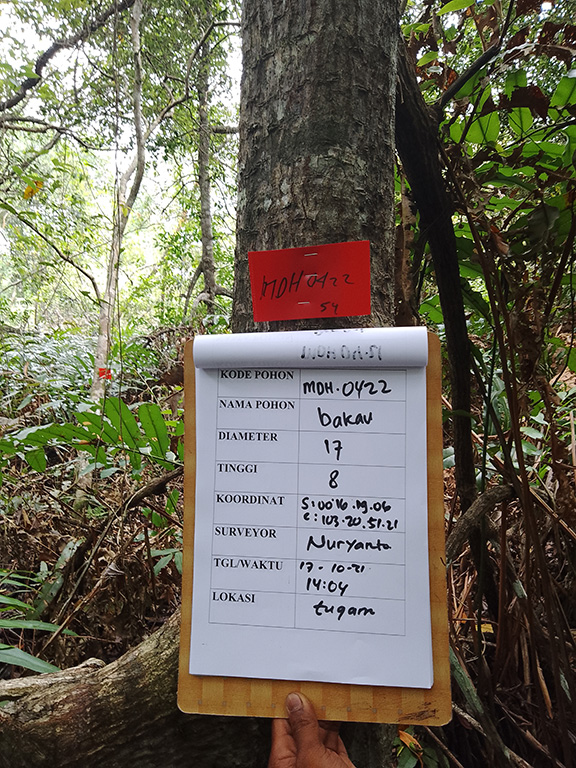 MDH 0422
54
KODE POHON MDH.0422
NAMA POHON bakau
DIAMETER 17
TINGGI 8
KOORDINAT S:00.16.19.06
e:103.20.51.21
SURVEYOR Nuryanto
TGL/WAKTU 17-10-21
14:04
LOKASI tugam